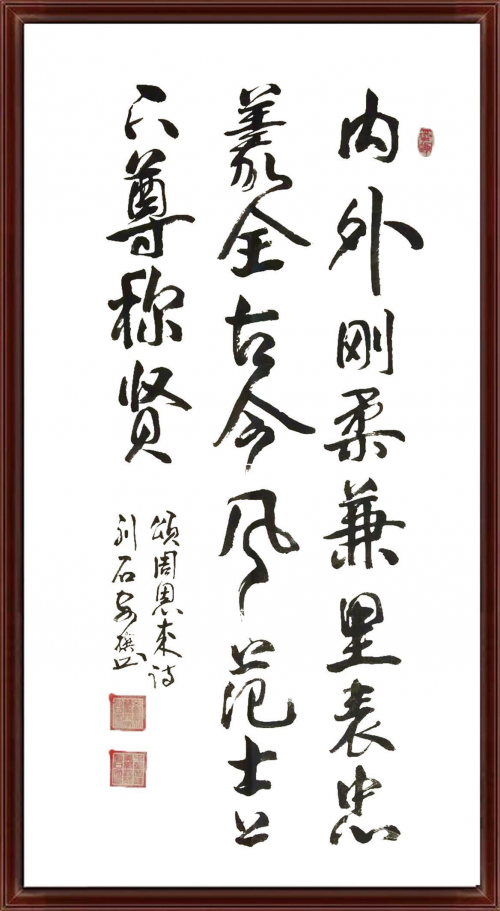 内外刚柔兼里表忠
義全古今风范士
下尊称贤
頌周恩来诗
刘石安撰书